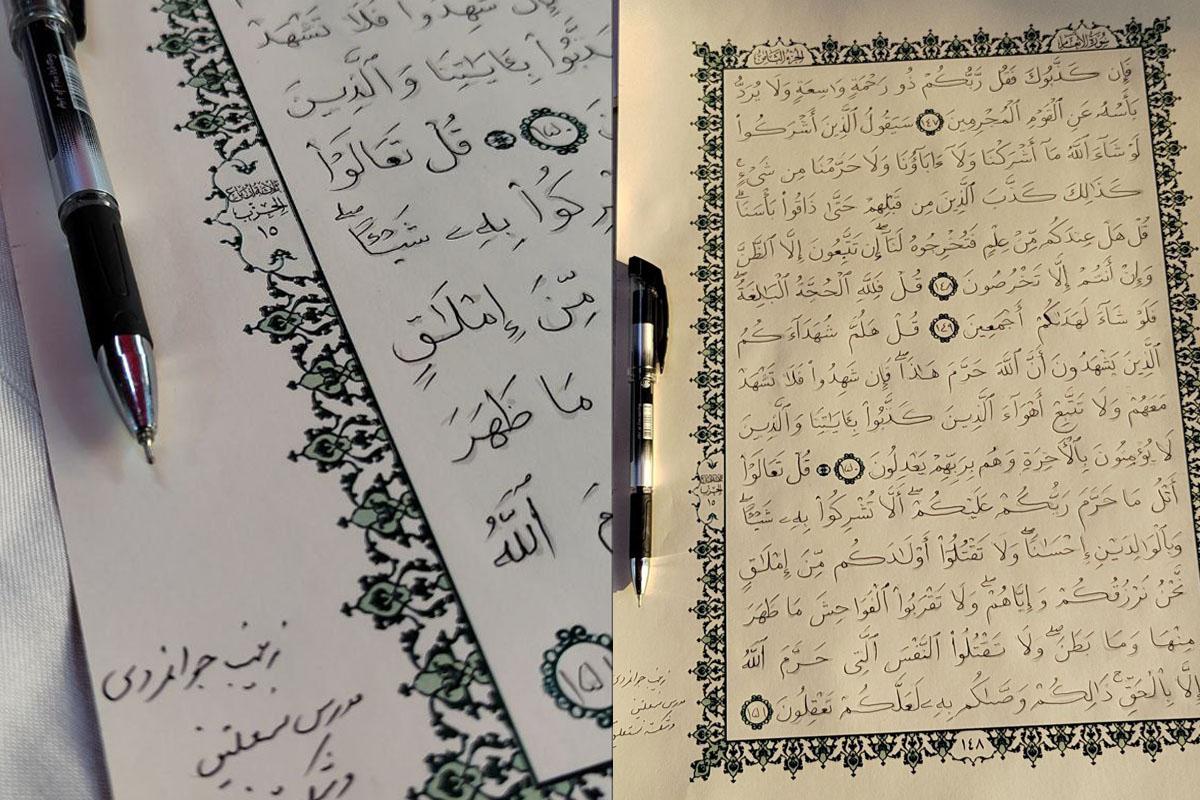 شَهِدُوا۟ فَلَا تَشْهَدْ
بِـَٔايَـٰتِنَا وَٱلَّذِينَ
١٥٠ قُلْ تَعَالَوْا۟
الحزب
١٥
بِهِۦ شَيْـًٔاۖ
مِّنْ إِمْلَـٰقٍ
مَا ظَهَرَ
ٱللَّهُ
١٥١
زینب جوانمردی
مدرس نستعلیق
سورة الأنعام
الجزء الثامن
فَإِن كَذَّبُوكَ فَقُل رَّبُّكُمْ ذُو رَحْمَةٍ وَٰسِعَةٍ وَلَا يُرَدُّ
بَأْسُهُۥ عَنِ ٱلْقَوْمِ ٱلْمُجْرِمِينَ ١٤٧ سَيَقُولُ ٱلَّذِينَ أَشْرَكُوا۟
لَوْ شَآءَ ٱللَّهُ مَآ أَشْرَكْنَا وَلَآ ءَابَآؤُنَا وَلَا حَرَّمْنَا مِن شَىْءٍۚ
كَذَٰلِكَ كَذَّبَ ٱلَّذِينَ مِن قَبْلِهِمْ حَتَّىٰ ذَاقُوا۟ بَأْسَنَاۗ
قُلْ هَلْ عِندَكُم مِّنْ عِلْمٍ فَتُخْرِجُوهُ لَنَآۖ إِن تَتَّبِعُونَ إِلَّا ٱلظَّنَّ
وَإِنْ أَنتُمْ إِلَّا تَخْرُصُونَ ١٤٨ قُلْ فَلِلَّهِ ٱلْحُجَّةُ ٱلْبَـٰلِغَةُۖ
فَلَوْ شَآءَ لَهَدَىٰكُمْ أَجْمَعِينَ ١٤٩ قُلْ هَلُمَّ شُهَدَآءَكُمُ
ٱلَّذِينَ يَشْهَدُونَ أَنَّ ٱللَّهَ حَرَّمَ هَـٰذَاۖ فَإِن شَهِدُوا۟ فَلَا تَشْهَدْ
مَعَهُمْۚ وَلَا تَتَّبِعْ أَهْوَآءَ ٱلَّذِينَ كَذَّبُوا۟ بِـَٔايَـٰتِنَا وَٱلَّذِينَ
لَا يُؤْمِنُونَ بِٱلْـَٔاخِرَةِ وَهُم بِرَبِّهِمْ يَعْدِلُونَ ١٥٠ قُلْ تَعَالَوْا۟
أَتْلُ مَا حَرَّمَ رَبُّكُمْ عَلَيْكُمْۖ أَلَّا تُشْرِكُوا۟ بِهِۦ شَيْـًٔاۖ
وَبِٱلْوَٰلِدَيْنِ إِحْسَـٰنًاۖ وَلَا تَقْتُلُوٓا۟ أَوْلَـٰدَكُم مِّنْ إِمْلَـٰقٍ
نَّحْنُ نَرْزُقُكُمْ وَإِيَّاهُمْۖ وَلَا تَقْرَبُوا۟ ٱلْفَوَٰحِشَ مَا ظَهَرَ
مِنْهَا وَمَا بَطَنَۖ وَلَا تَقْتُلُوا۟ ٱلنَّفْسَ ٱلَّتِى حَرَّمَ ٱللَّهُ
إِلَّا بِٱلْحَقِّۚ ذَٰلِكُمْ وَصَّىٰكُم بِهِۦ لَعَلَّكُمْ تَعْقِلُونَ ١٥١
الحزب
١٥
زینب جوانمردی
مدرس نستعلیق
و شکسته نستعلیق
١٤٨